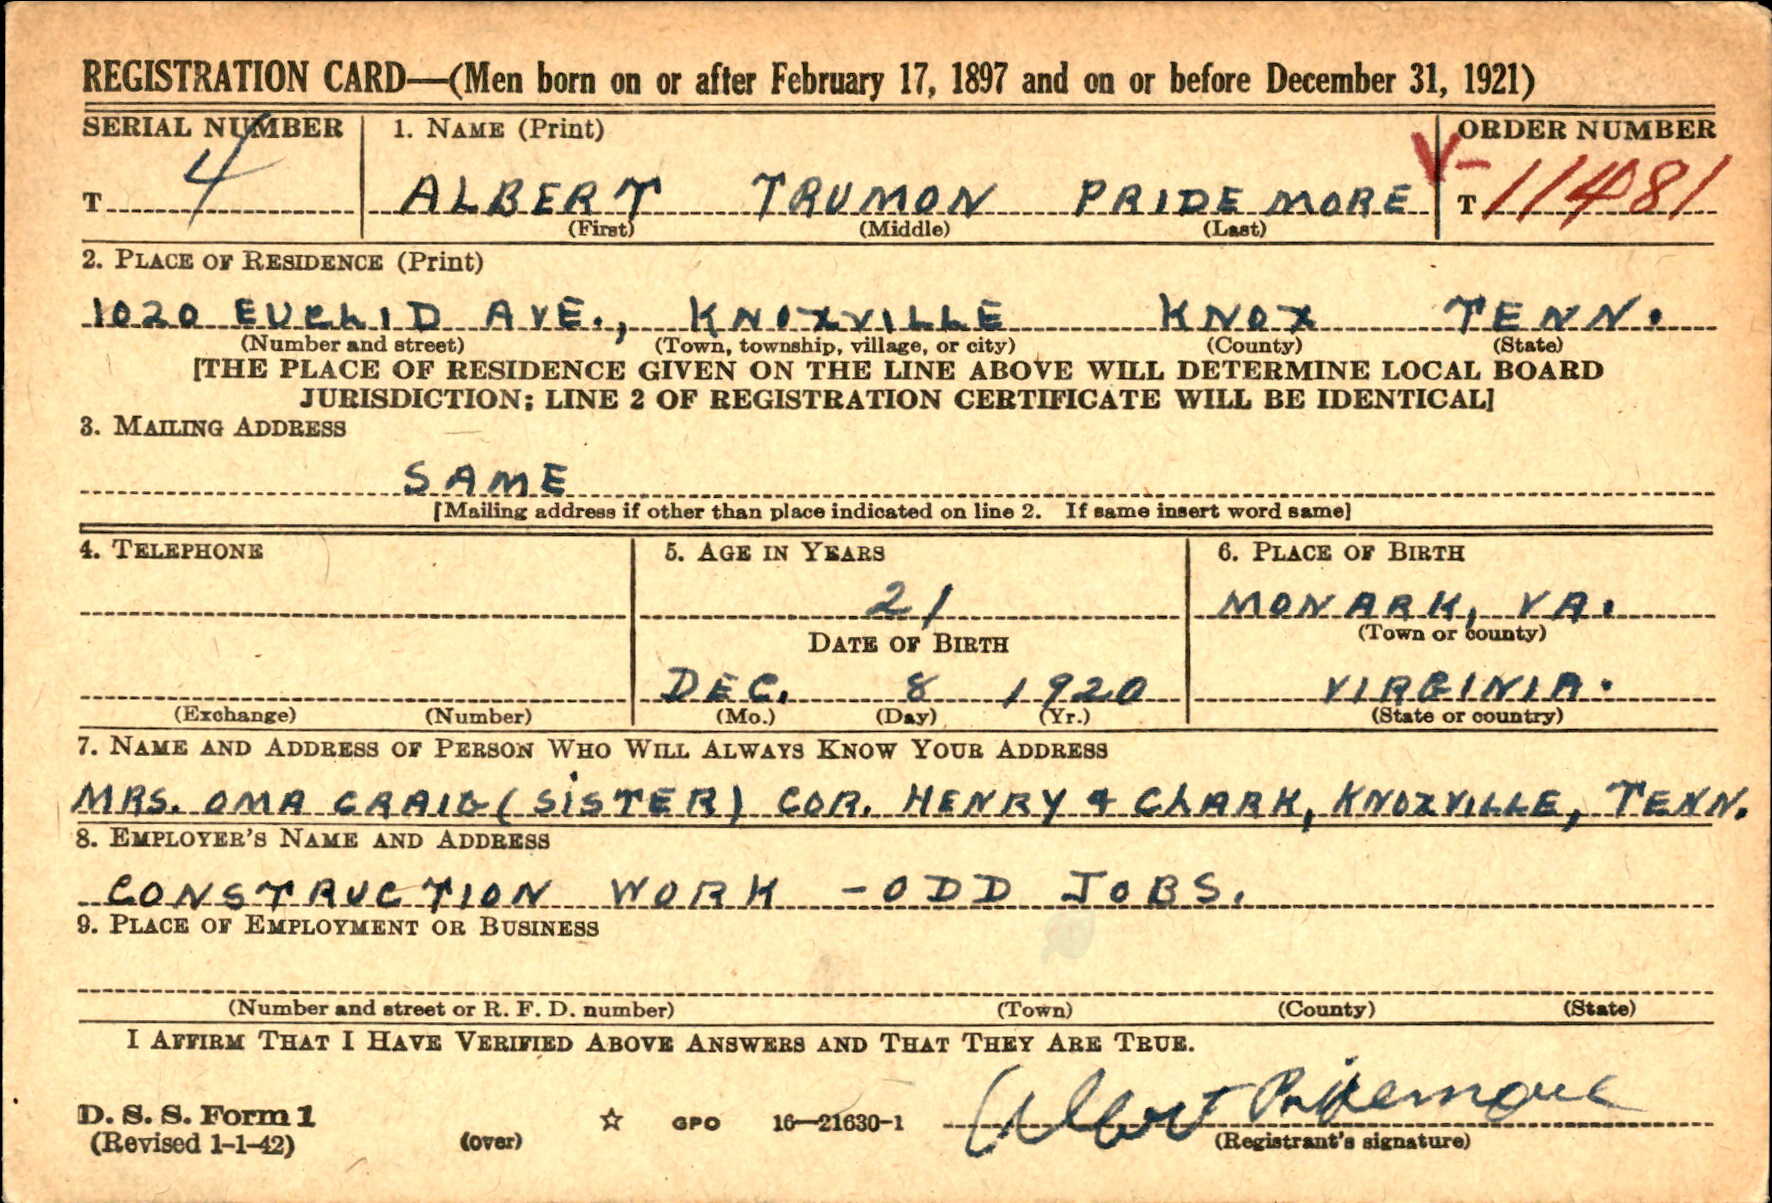 REGISTRATION CARD—(Men born on or after February 17, 1897 and on or before December 31, 1921)
SERIAL NUMBER 1. NAME (Print) ORDER NUMBER
T 4 ALBERT TRUMON PRIDEMORE V- T 11481
(First) (Middle) (Last)
2. PLACE OF RESIDENCE (Print)
1020 EUCLID AVE., KNOXVILLE KNOX TENN.
(Number and street) (Town, township, village, or city) (County) (State)
[THE PLACE OF RESIDENCE GIVEN ON THE LINE ABOVE WILL DETERMINE LOCAL BOARD
JURISDICTION; LINE 2 OF REGISTRATION CERTIFICATE WILL BE IDENTICAL]
3. MAILING ADDRESS
SAME
[Mailing address if other than place indicated on line 2. If same insert word same]
4. TELEPHONE 5. AGE IN YEARS 6. PLACE OF BIRTH
21 MONARK, VA.
DATE OF BIRTH (Town or county)
DEC. 8 1920 VIRGINIA.
(Exchange) (Number) (Mo.) (Day) (Yr.) (State or country)
7. NAME AND ADDRESS OF PERSON WHO WILL ALWAYS KNOW YOUR ADDRESS
MRS. OMA CRAIG (SISTER) COR. HENRY & CLARK, KNOXVILLE, TENN.
8. EMPLOYER'S NAME AND ADDRESS
CONSTRUCTION WORK - ODD JOBS.
9. PLACE OF EMPLOYMENT OR BUSINESS
(Number and street or R. F. D. number) (Town) (County) (State)
I AFFIRM THAT I HAVE VERIFIED ABOVE ANSWERS AND THAT THEY ARE TRUE.
Albert Pridemore
D. S. S. Form 1
(Revised 1-1-42) (over) ☆ GPO 16—21630-1 (Registrant's signature)